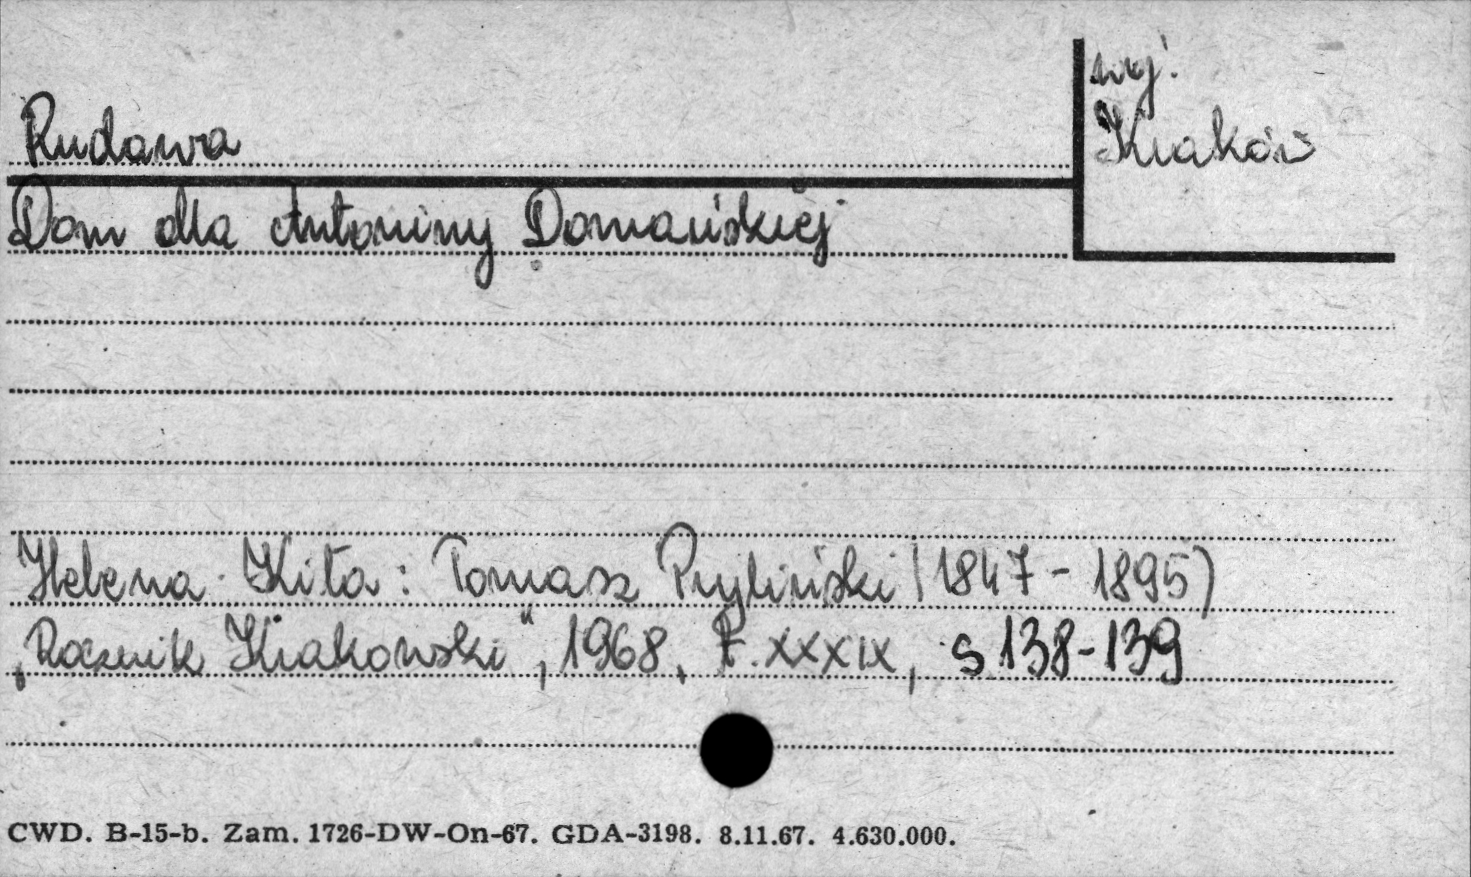 woj.
Kraków
Rudawa
Dom dla Antoniny Domańskiej
Helena Kita: Tomasz Pryliński (1847-1895)
„Rocznik Krakowski", 1968, T. XXXIX, s 138-139
CWD. B-15-b. Zam. 1726-DW-On-67. GDA-3198. 8.11.67. 4.630.000.